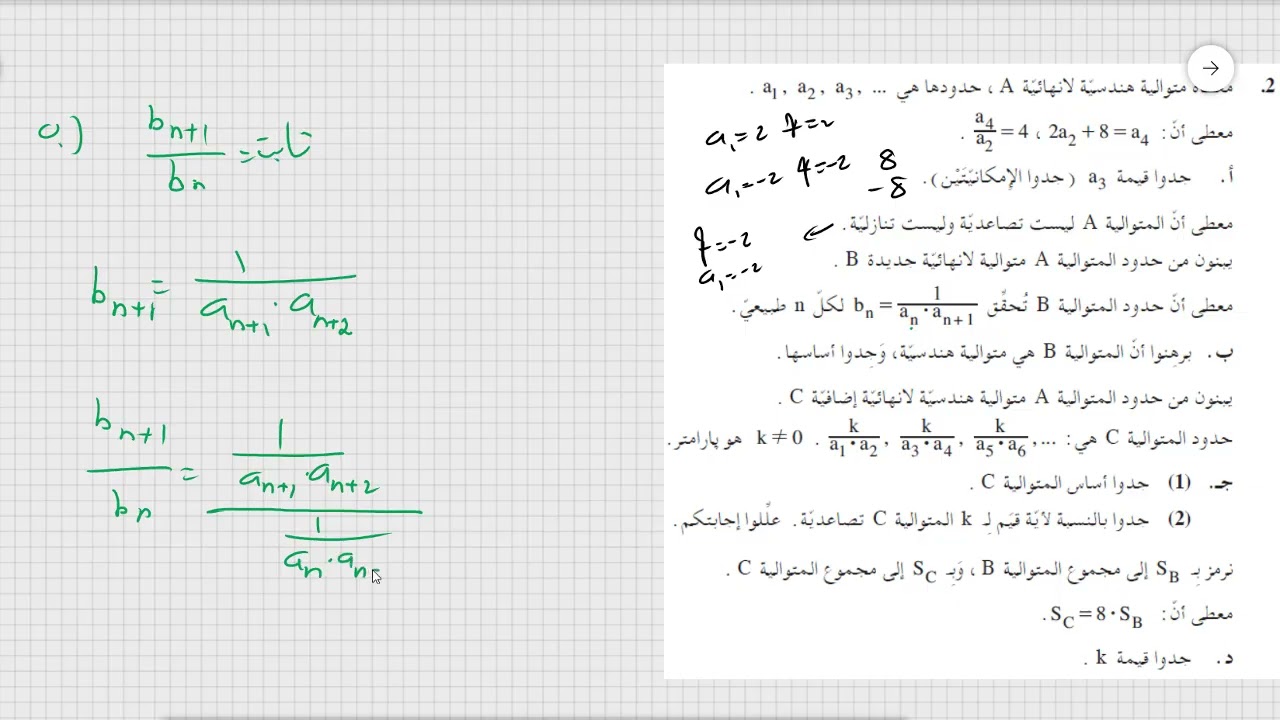 ب.) bₙ₊₁ / bₙ = ثابت
bₙ₊₁ = 1 / (aₙ₊₁ · aₙ₊₂)
bₙ₊₁ / bₙ = (1 / (aₙ₊₁ · aₙ₊₂)) / (1 / (aₙ · aₙ
2. متوالية هندسيّة لانهائيّة A ، حدودها هي a₁ , a₂ , a₃ , ... .
معطى أنّ: a₄/a₂ = 4 ، 2a₂ + 8 = a₄ .
a₁ = 2 q = 2
أ. جدوا قيمة a₃ (جدوا الإمكانيّتَيْن).
a₁ = -2 q = -2 8
-8
معطى أنّ المتوالية A ليست تصاعديّة وليست تنازليّة.
q = -2
يبنون من حدود المتوالية A متوالية لانهائيّة جديدة B .
a₁ = -2
معطى أنّ حدود المتوالية B تُحقِّق bₙ = 1 / (aₙ · aₙ₊₁) لكلّ n طبيعيّ.
ب. برهِنوا أنّ المتوالية B هي متوالية هندسيّة، وَجِدوا أساسها.
يبنون من حدود المتوالية A متوالية هندسيّة لانهائيّة إضافيّة C .
حدود المتوالية C هي: k/(a₁ · a₂) , k/(a₃ · a₄) , k/(a₅ · a₆) , ... . k ≠ 0 هو پارامتر.
جـ. (1) جدوا أساس المتوالية C .
(2) جدوا بالنسبة لأيّة قيَم لِـ k المتوالية C تصاعديّة. علِّلوا إجابتكم.
نرمز بِـ S_B إلى مجموع المتوالية B ، وَبِـ S_C إلى مجموع المتوالية C .
معطى أنّ: S_C = 8 · S_B .
د. جدوا قيمة k .